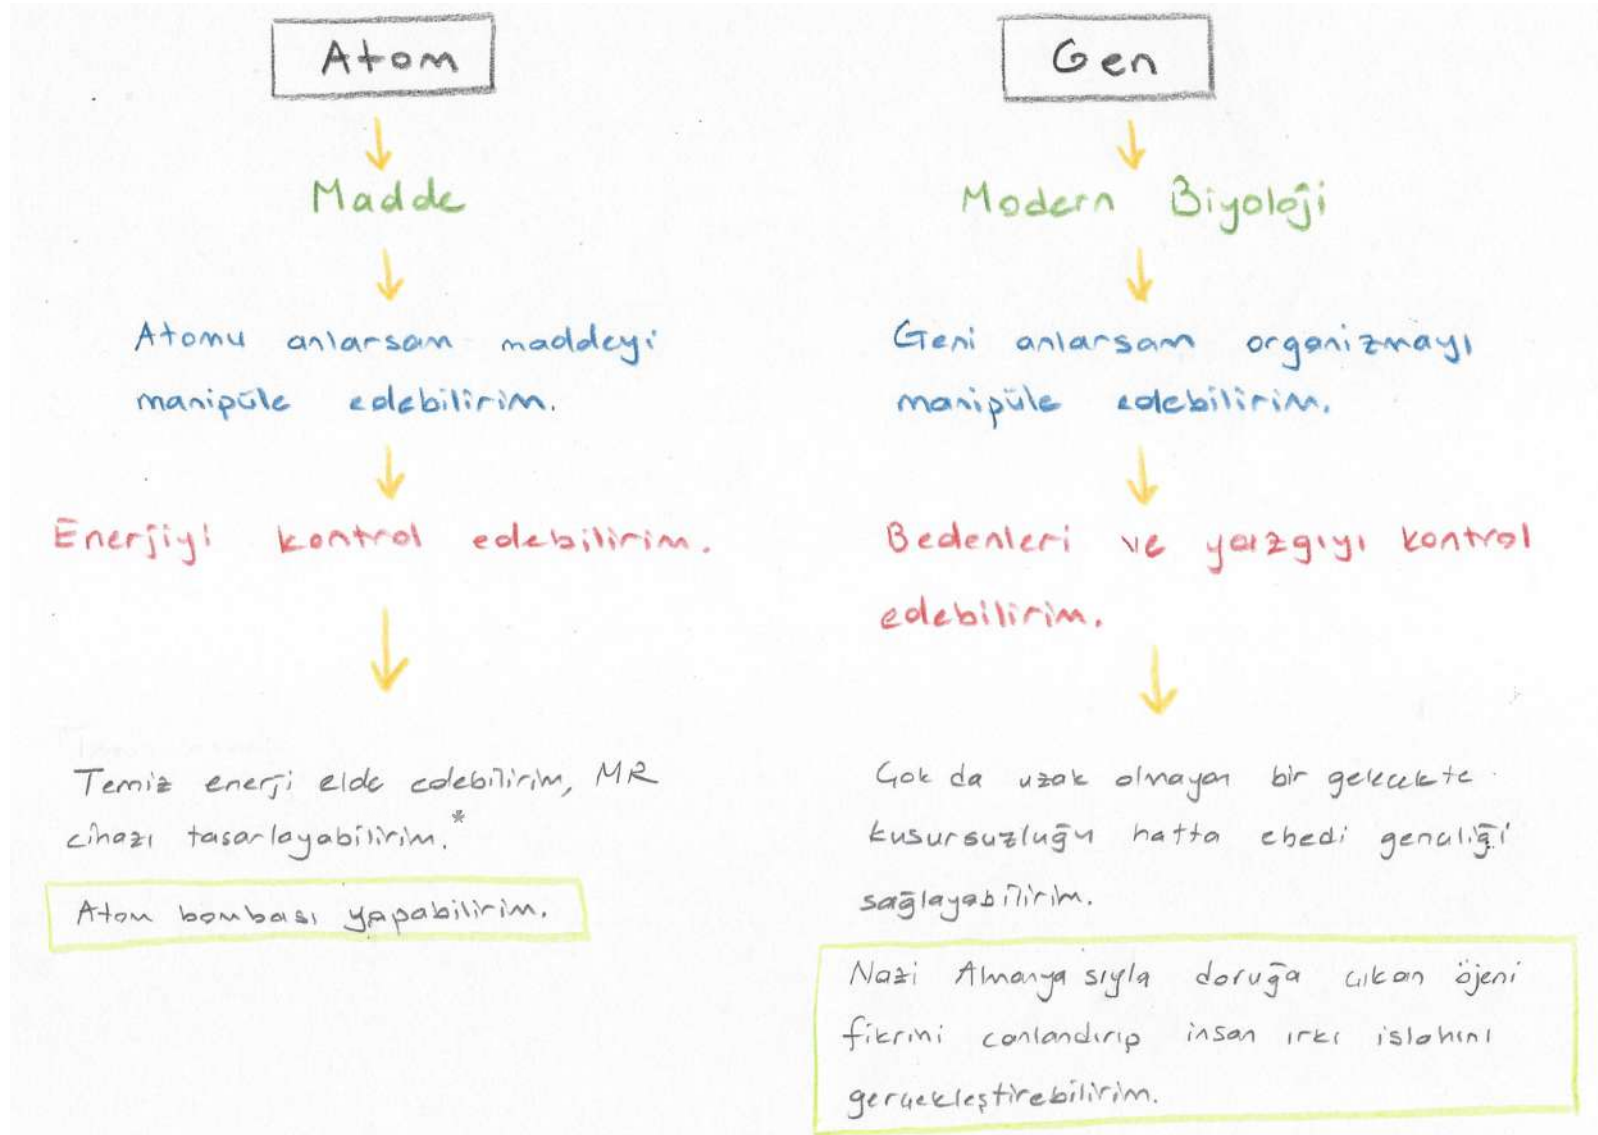 Atom
Madde
Atomu anlarsam maddeyi
manipüle edebilirim.
Enerjiyi kontrol edebilirim.
Temiz enerji elde edebilirim, MR
cihazı tasarlayabilirim.*
Atom bombası yapabilirim.
Gen
Modern Biyoloji
Geni anlarsam organizmayı
manipüle edebilirim.
Bedenleri ve yazgıyı kontrol
edebilirim.
Çok da uzak olmayan bir gelecekte
kusursuzluğu hatta ebedi gençliği
sağlayabilirim.
Nazi Almanyasıyla doruğa çıkan öjeni
fikrini canlandırıp insan ırkı islahını
gerçekleştirebilirim.